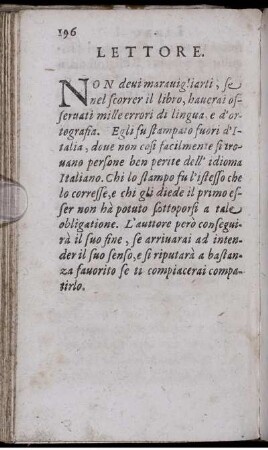 196
LETTORE.
NON devi maravigliarti, se
nel scorrer il libro, haverai os-
servati mille errori di lingua, e d'or-
tografia. Egli fu stampato fuori d'I-
talia, dove non così facilmente si tro-
uano persone ben perite dell' idioma
Italiano. Chi lo stampo fu l'istesso che
lo corresse, e chi gli diede il primo es-
ser non hà potuto sottoporsi a tale
obligatione. L'auttore però consegui-
rà il suo fine, se arrivarai ad inten-
der il suo senso, e si riputarà a bastan-
za favorito se ti compiacerai compa-
tirlo.